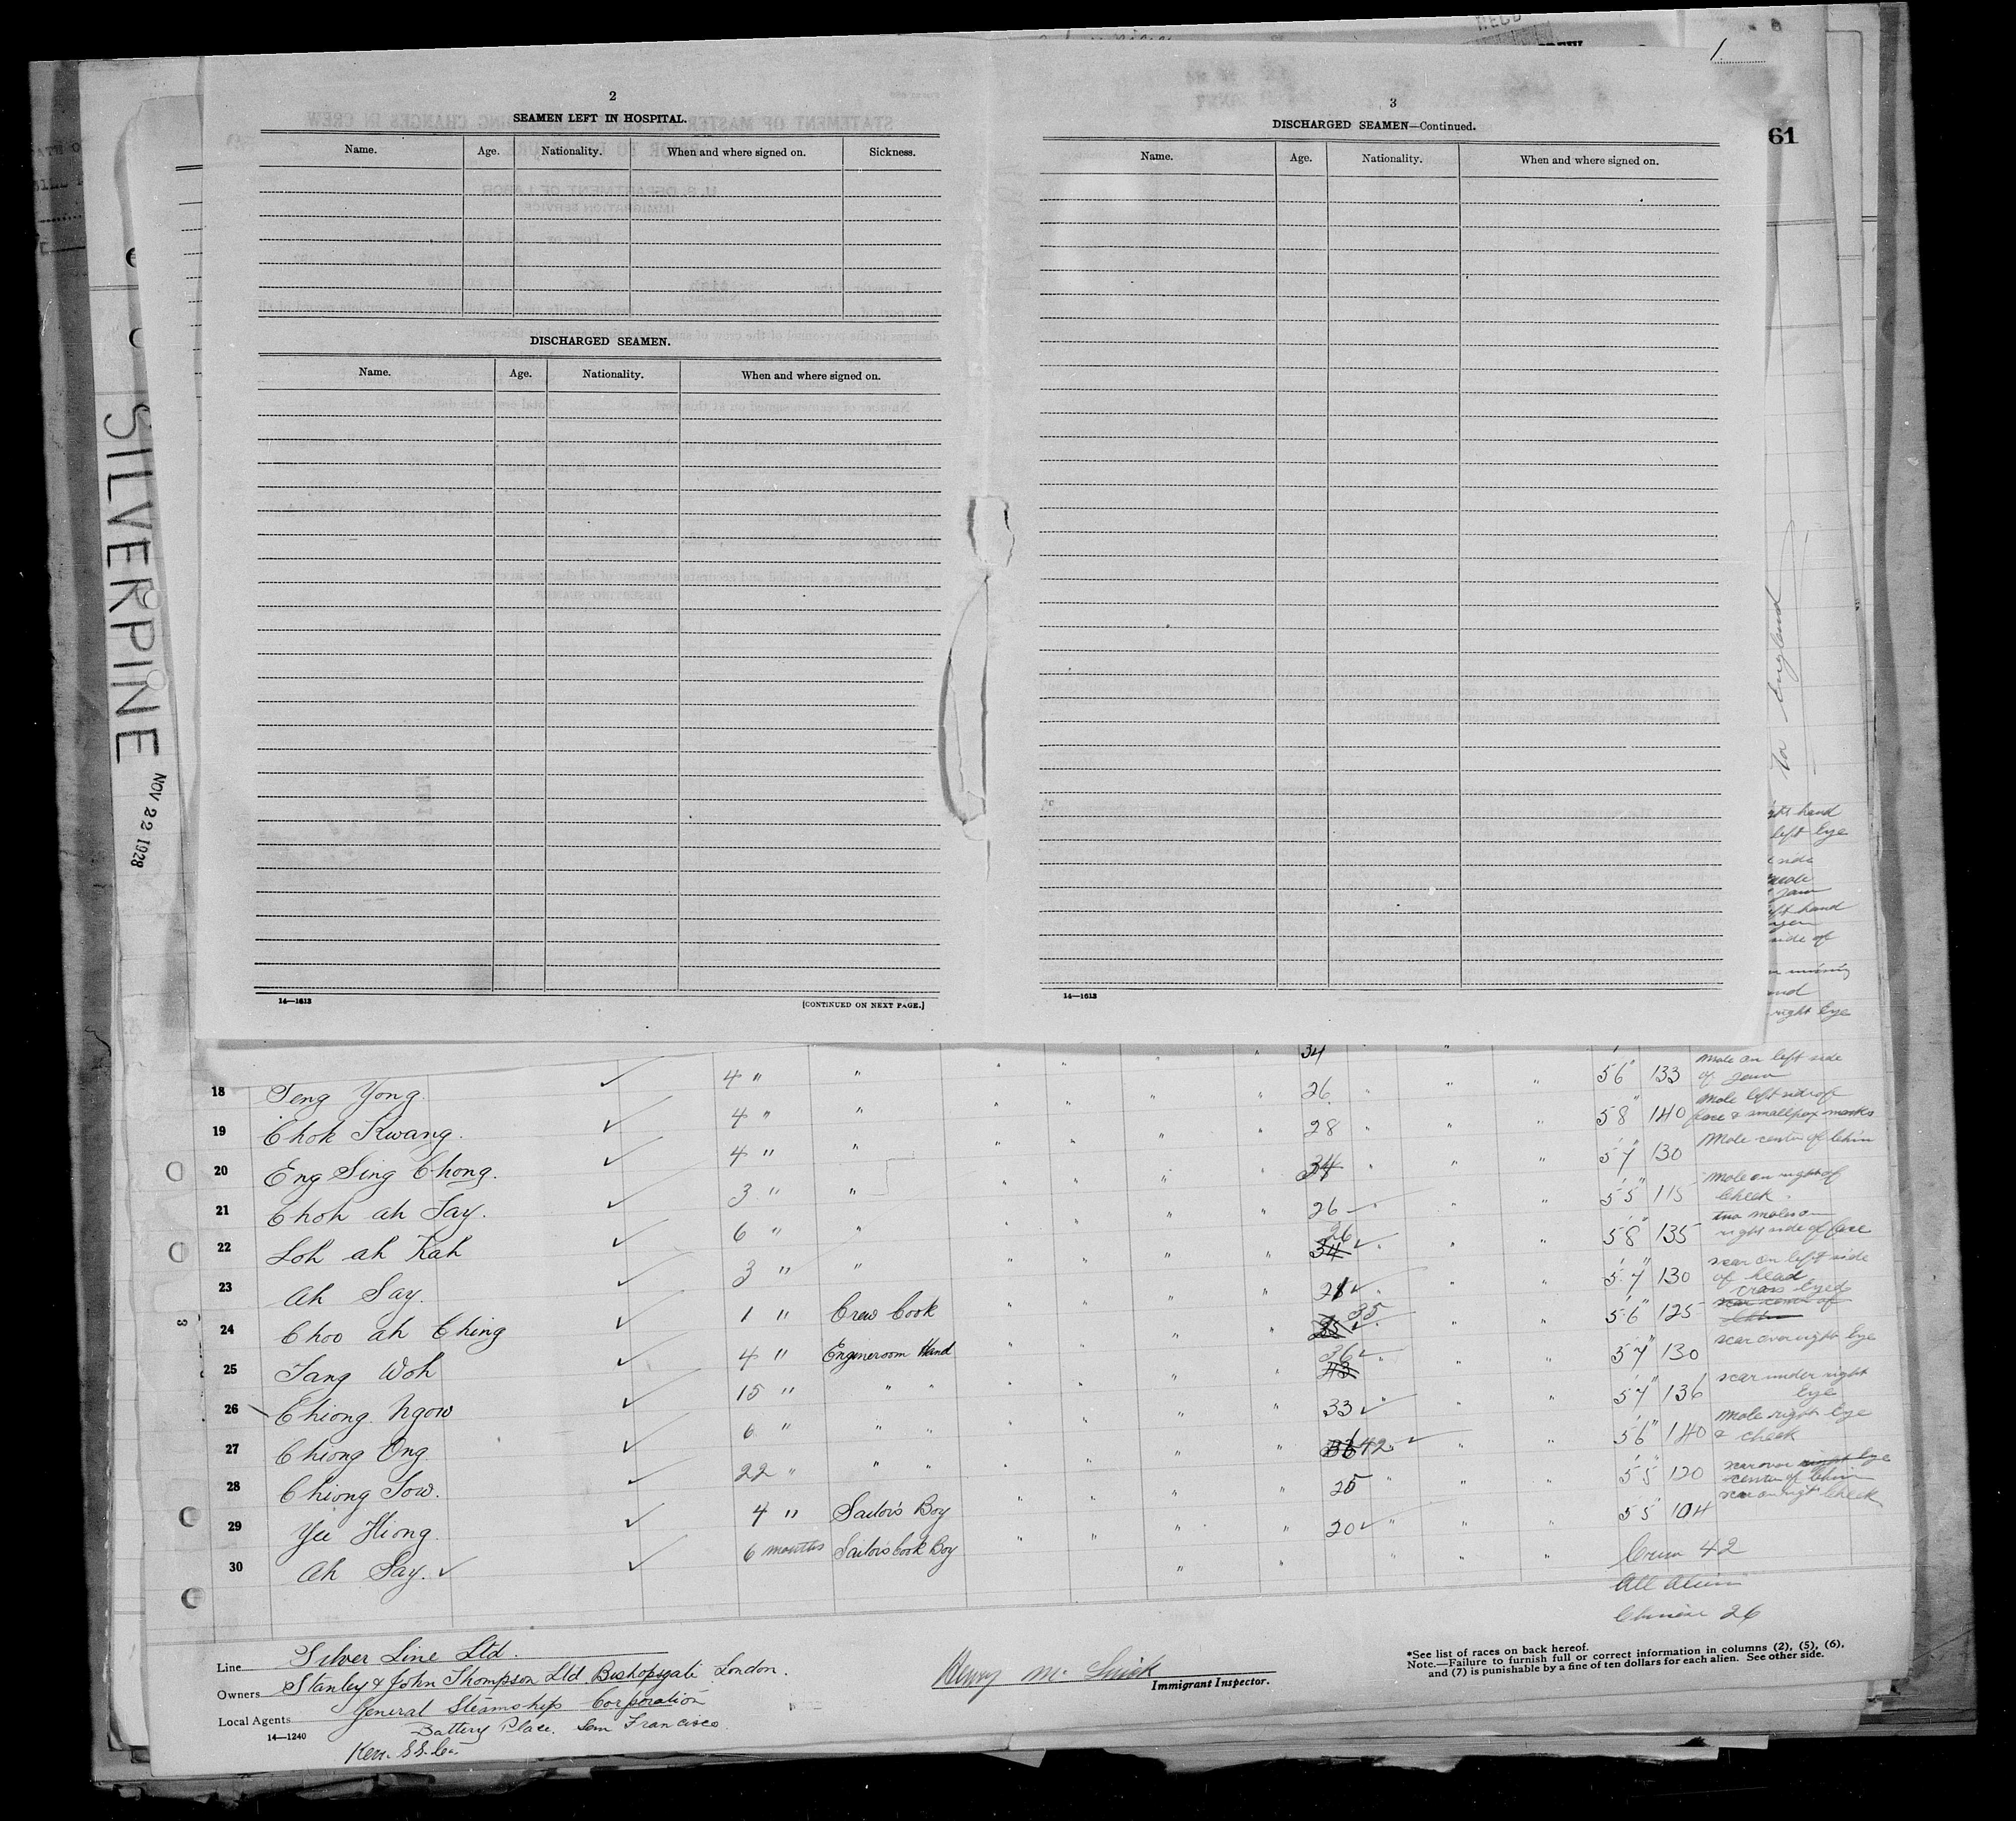 SILVERPINE
NOV 22 1928
61
2
SEAMEN LEFT IN HOSPITAL.
Name. Age. Nationality. When and where signed on. Sickness.
DISCHARGED SEAMEN.
Name. Age. Nationality. When and where signed on.
14—1613 [CONTINUED ON NEXT PAGE.]
3
DISCHARGED SEAMEN—Continued.
Name. Age. Nationality. When and where signed on.
14—1613
to England
hand
left Eye
side
hand
side of
right Eye
34
18 Teng Yong. 4 " " 26 5'6" 133 Mole on left side
19 Chok Kwang. 4 " " 28 5'8" 140 Mole left side of face & smallpox marks
20 Eng Sing Chong. 4 " " 34 5'7" 130 Mole center of Chin
21 Choh ah Say. 3 " " 26 5'5" 115 Mole on right of Cheek.
22 Loh ah Kah 6 " " 34 26 5'8" 135 two moles on right side of face
23 Ah Say. 3 " " 21 5'7" 130 scar on left side of head
24 Choo ah Ching 1 " Crew Cook 35 5'6" 125 cross Eyed
25 Tang Woh 4 " Engineroom Hand 43 36 5'7" 130 scar over right Eye
26 Chiong Ngow 15 " " " 33 5'7" 136 scar under right Eye
27 Chiong Ong 6 " " " 36 42 5'6" 140 Mole right Eye & cheek
28 Chiong Sow. 22 " " " 25 5'5" 120 scar over right Eye center of Chin
29 Yee Hiong. 4 " Sailor's Boy 20 5'5" 104 scar on right Cheek
30 Ah Say. 6 months Sailor's Cook Boy
Crew 42
All Alien
Chinese 26
Line Silver Line Ltd.
Owners Stanley & John Thompson Ltd. Bishopsgate London.
Local Agents General Steamship Corporation
Battery Place. San Francisco.
14—1240
Kerr. S.S. Co.
Immigrant Inspector.
*See list of races on back hereof.
Note.—Failure to furnish full or correct information in columns (2), (5), (6),
and (7) is punishable by a fine of ten dollars for each alien. See other side.